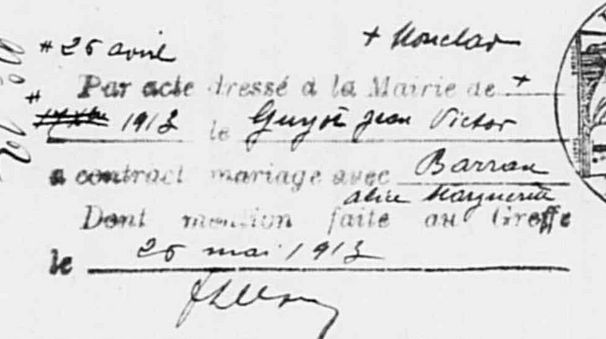 # 26 avril + Monclar
Par acte dressé à la Mairie de +
# 1913 le Guyot Jean Victor
a contract mariage avec Barrau
alice Marguerite
Dont mention faite au Greffe
le 26 mai 1913